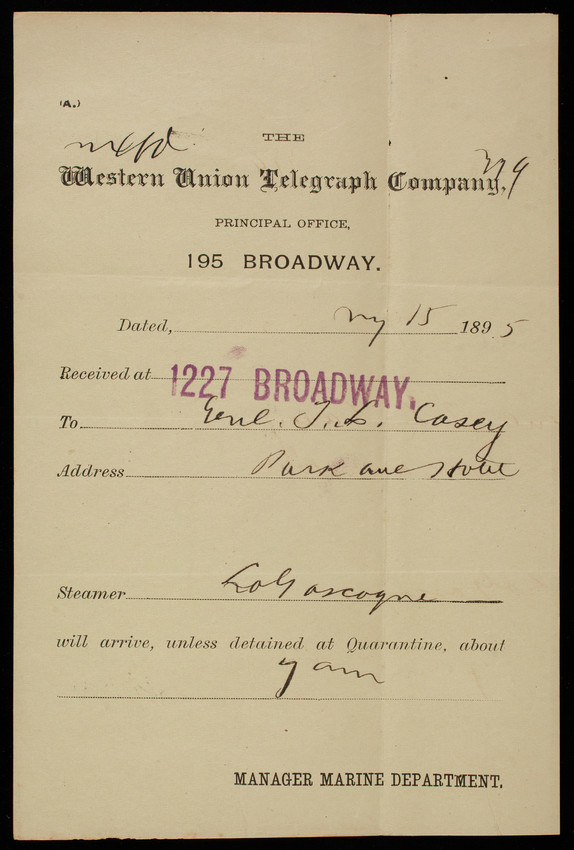 (A.)
THE
Western Union Telegraph Company,
PRINCIPAL OFFICE,
195 BROADWAY.
Dated, 15 1895
Received at 1227 BROADWAY.
To Genl. T. L. Casey
Address Park ave Hotel
Steamer La Gascogne
will arrive, unless detained at Quarantine, about
7 am
MANAGER MARINE DEPARTMENT.